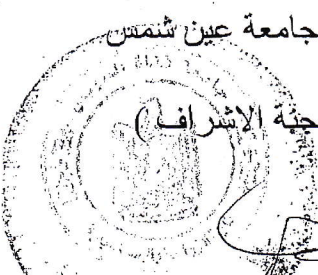 جامعة عين شمس
جنة الاشراف )